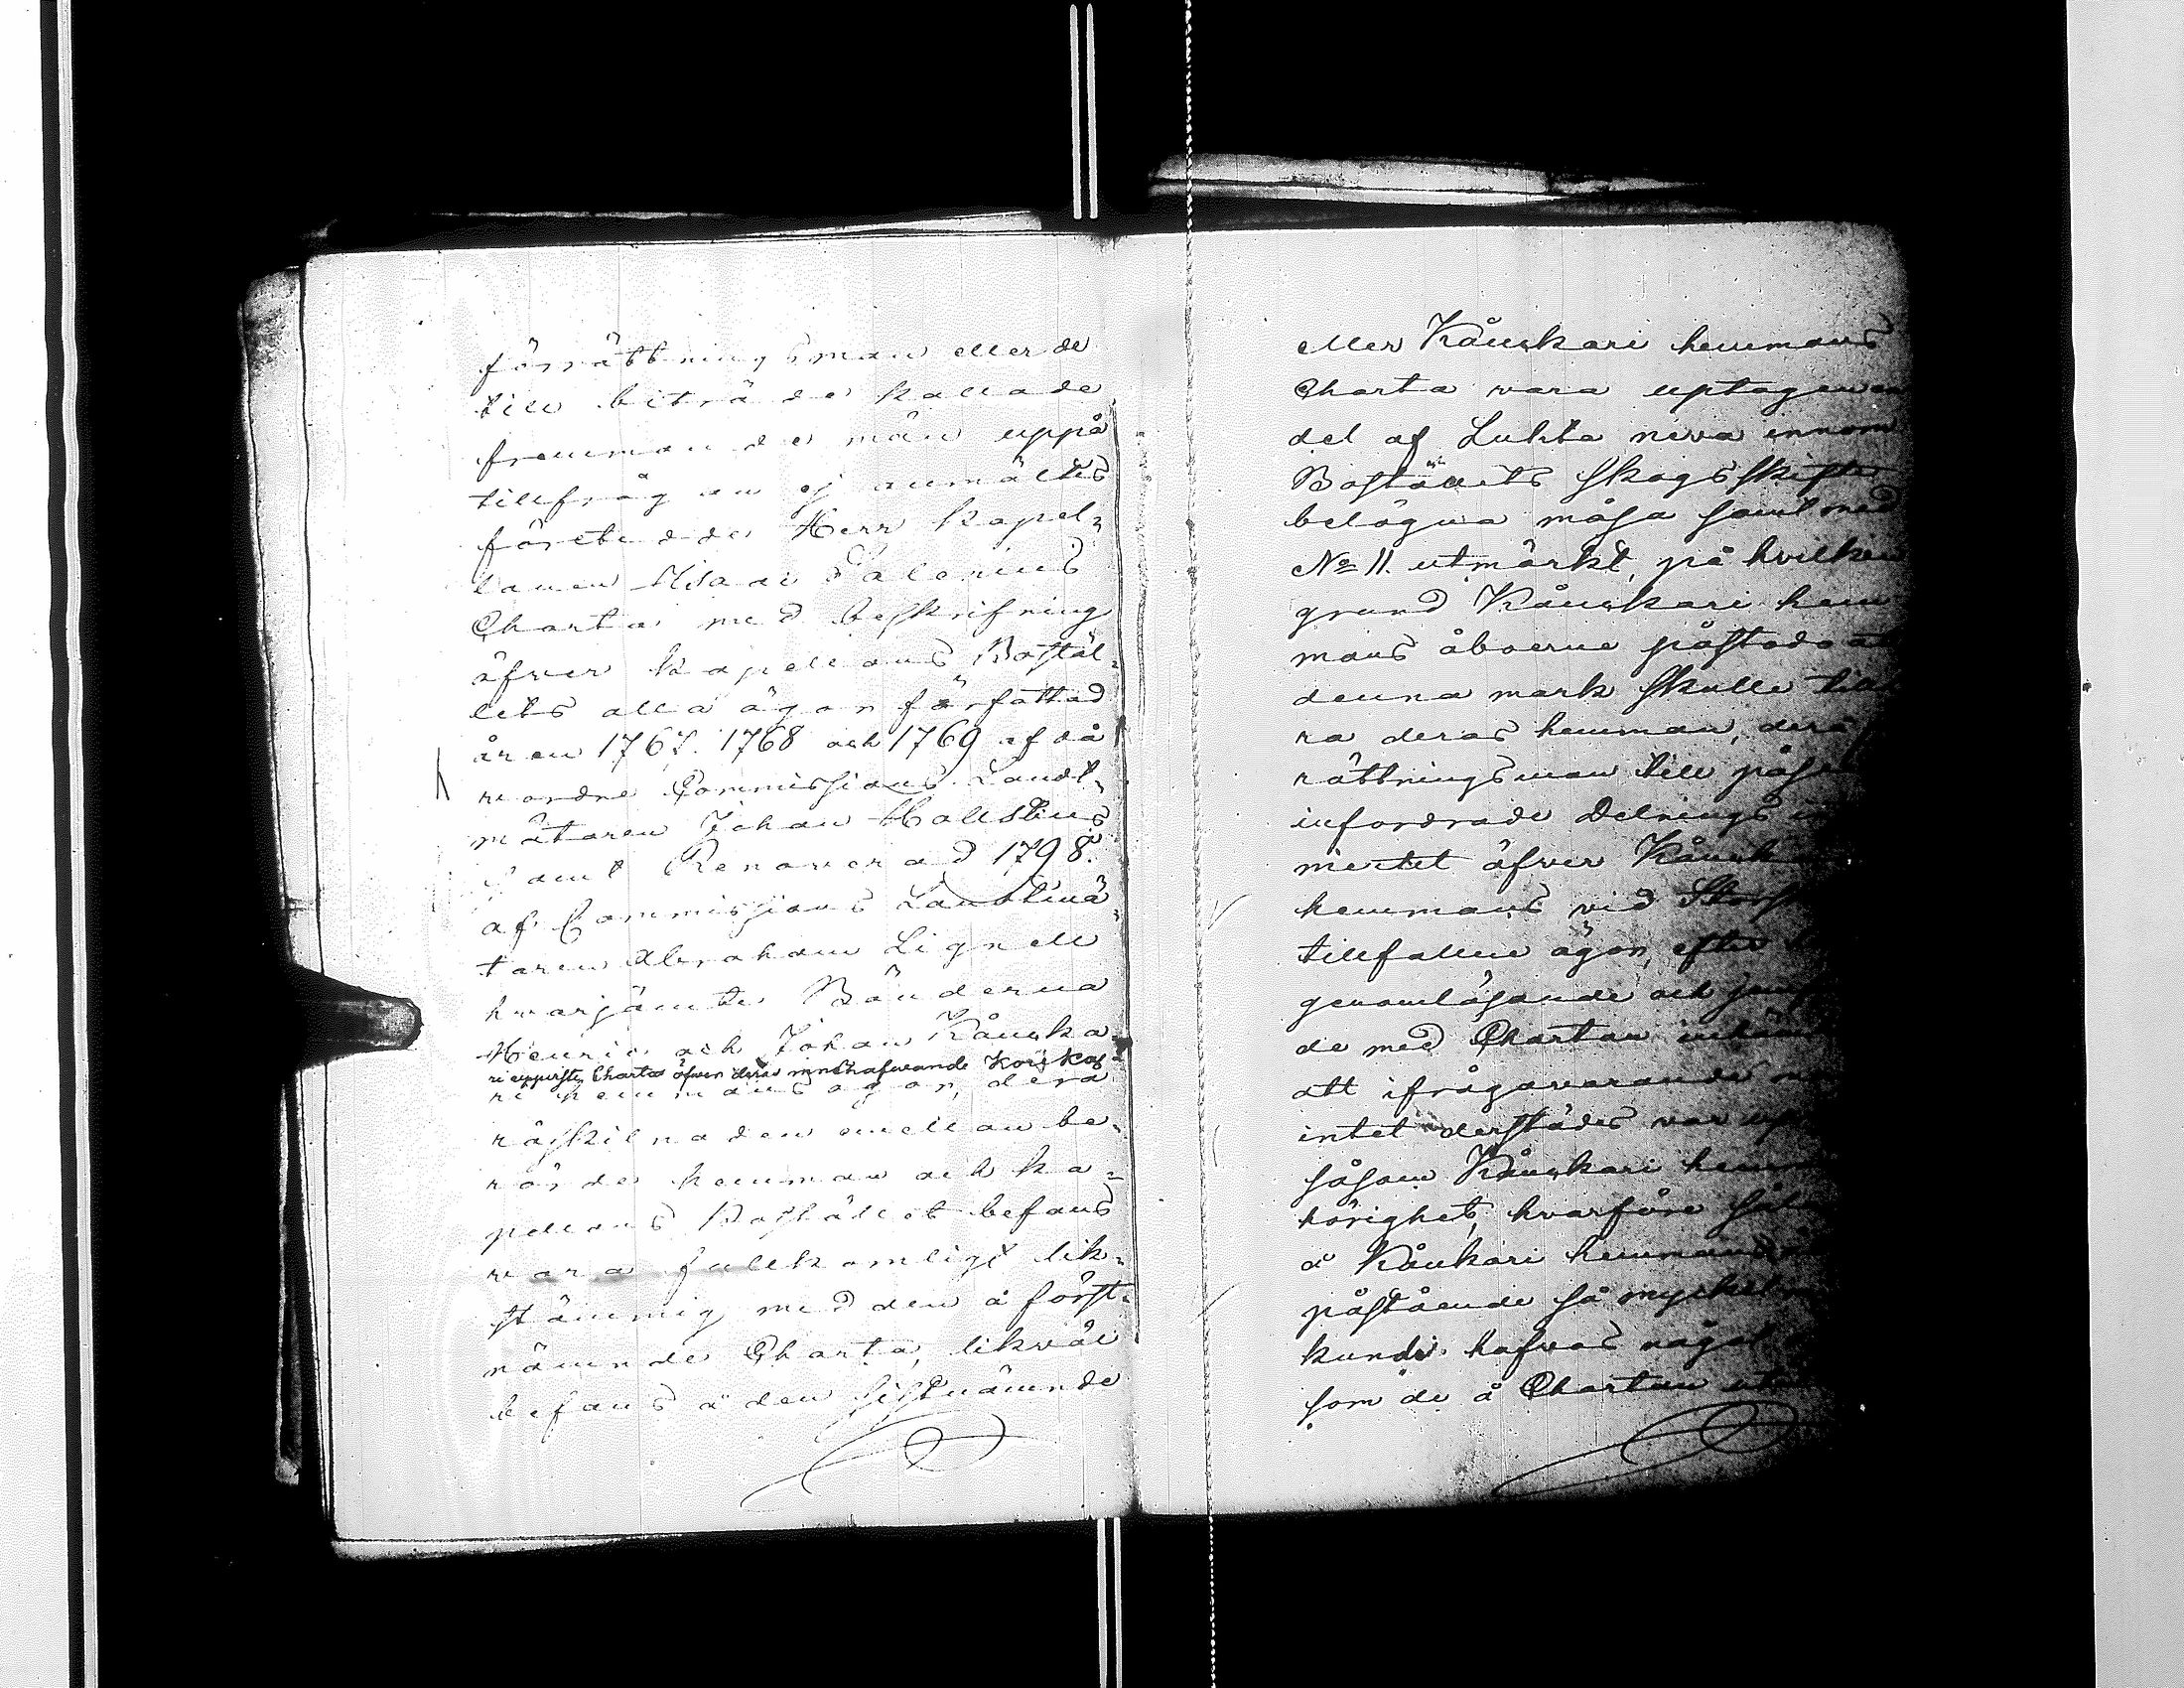 förrättningsman eller de
till biträde kallade
fremmande män uppå
tillfrågan ej anmältes
företedde Herr Kapel¬
lanen Salenius
Charta med beskrifning
öfver Kapellans Bostäl¬
lets alla ägor författad
åren 1767. 1768 och 1769 af då
wardne Commissions Landt¬
mätaren Johan Hallstius
samt Renoverad 1798.
af Commissions Landtmä¬
taren Abraham Lignell
hvarjämte Bönderna
Henric och Johan Kånska
ri uppviste Charta öfver deras innehafwande Kånska
ri hemmans ägor, dera
råskilnaden emellan be¬
rörde hemman och ka¬
pellans Bostället befans
vara fullkomligt lik¬
stämmig med den å först¬
nämnde Charta, likväl
befans å den sistnämnde
eller Kånskari hemmans
Charta vara uptagen en
del af Luhta neva innom
Boställets Skogsskifte
belägna måsa samt med
No 11. utmärkt, på hvilken
grund Kånskari hem
mans åboerne påstodo at
denna mark skulle
ra deras hemman,
rättningsman till
infordrade Delnings in
mentet öfver Kånsk
hemmans vid
tillfallne ägor, efter
genomläsande och
de med Chartan
att ifrågavarande
intet derstädes var up
såsom Kånskari hem
hörighet, hvarföre
å Kånkari hemmans
påstående så mycket
kunde hafvas något
som de å Chartan